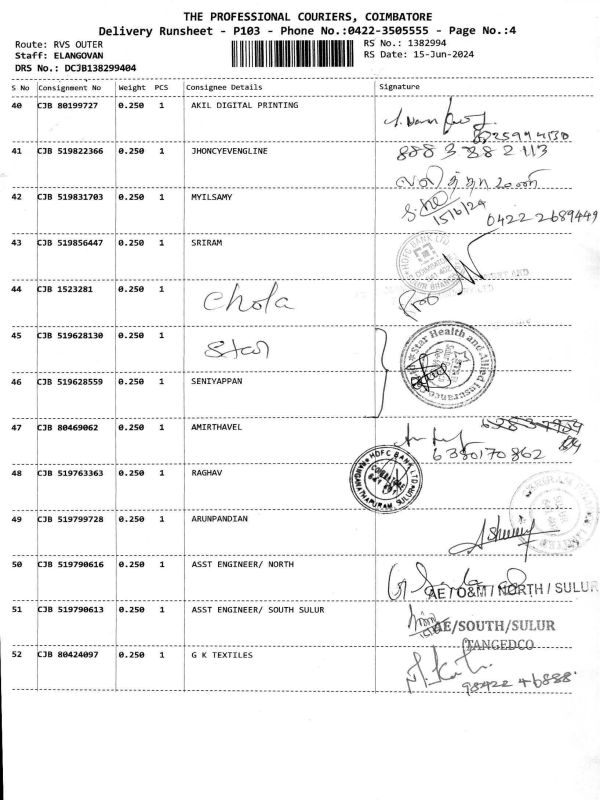 THE PROFESSIONAL COURIERS, COIMBATORE
Delivery Runsheet - P103 - Phone No.:0422-3505555 - Page No.:4
Route: RVS OUTER
Staff: ELANGOVAN
DRS No.: DCJB138299404
RS No.: 1382994
RS Date: 15-Jun-2024
S No Consignment No Weight PCS Consignee Details Signature
40 CJB 80199727 0.250 1 AKIL DIGITAL PRINTING
41 CJB 519822366 0.250 1 JHONCYEVENGLINE 888 3 88 2 113
42 CJB 519831703 0.250 1 MYILSAMY 15/6/24 0422 2689449
43 CJB 519856447 0.250 1 SRIRAM
HDFC BANK LTD
44 CJB 1523281 0.250 1 Chola
45 CJB 519628130 0.250 1 Star
Star Health and Allied Insurance
46 CJB 519628559 0.250 1 SENIYAPPAN
47 CJB 80469062 0.250 1 AMIRTHAVEL
6380170862
48 CJB 519763363 0.250 1 RAGHAV
HDFC BANK LTD
RANGANATHAPURAM, SULUR
49 CJB 519799728 0.250 1 ARUNPANDIAN
50 CJB 519790616 0.250 1 ASST ENGINEER/ NORTH
AE / O&M / NORTH / SULUR
51 CJB 519790613 0.250 1 ASST ENGINEER/ SOUTH SULUR
AE/SOUTH/SULUR
TANGEDCO
52 CJB 80424097 0.250 1 G K TEXTILES
98422 46888